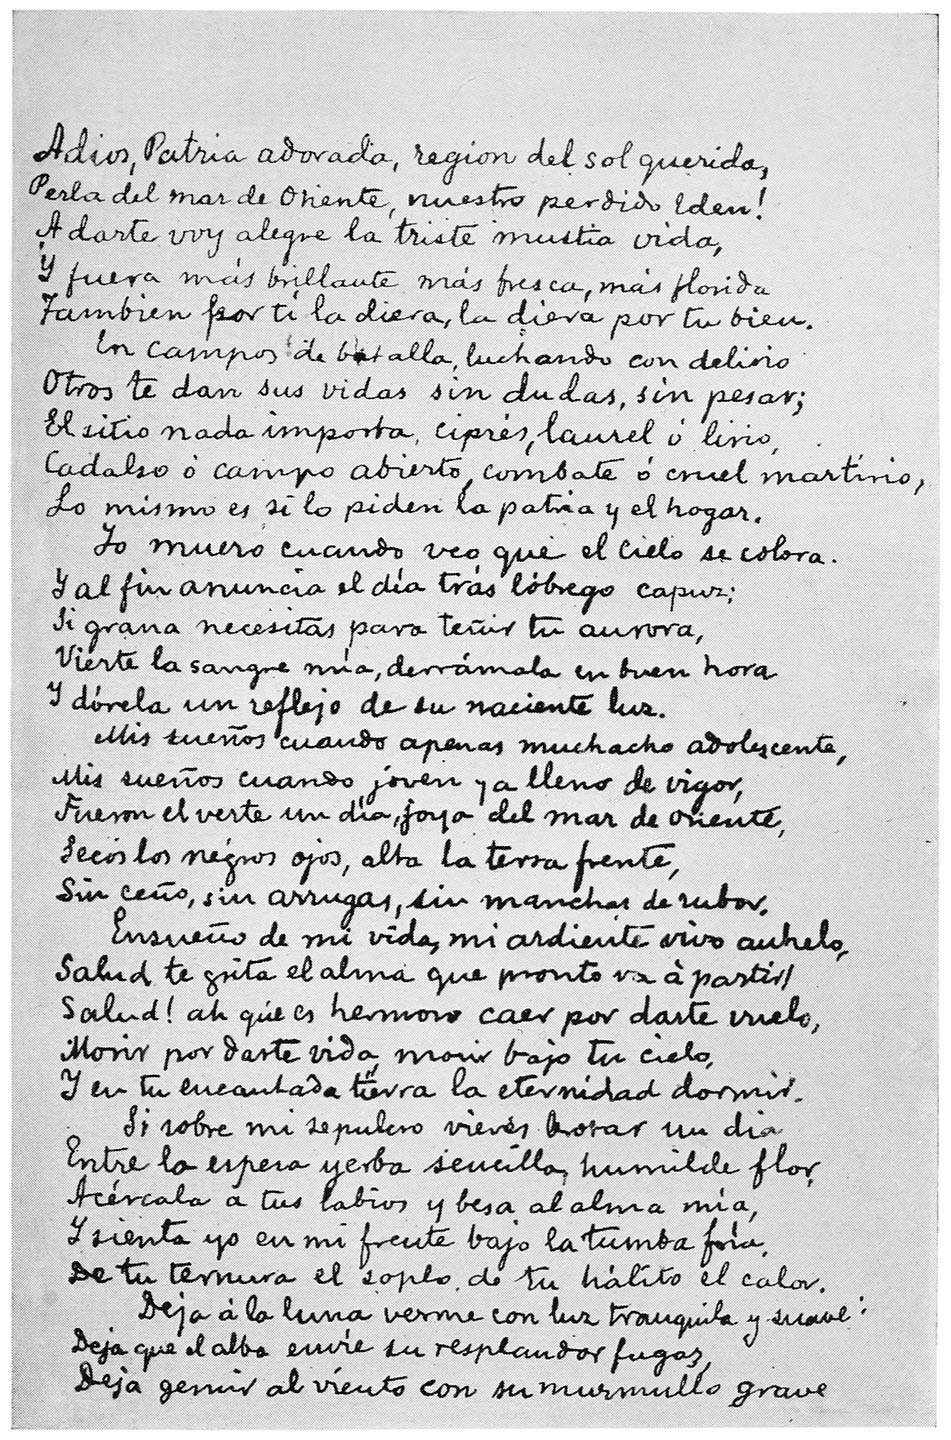 Adios, Patria adorada, region del sol querida,
Perla del mar de Oriente, nuestro perdido Eden!
A darte voy alegre la triste mustia vida,
Y fuera más brillante más fresca, más florida
Tambien por tí la diera, la diera por tu bien.
En campos de batalla, luchando con delirio
Otros te dan sus vidas sin dudas, sin pesar;
El sitio nada importa, ciprés, laurel ó lirio,
Cadalso ó campo abierto, combate ó cruel martirio,
Lo mismo es si lo piden la patria y el hogar.
Yo muero cuando veo que el cielo se colora.
Y al fin anuncia el día trás lóbrego capuz;
Si grana necesitas para teñir tu aurora,
Vierte la sangre mía, derrámala en buen hora
Y dórela un reflejo de su naciente luz.
Mis sueños cuando apenas muchacho adolescente,
Mis sueños cuando joven ya lleno de vigor,
Fueron el verte un día, joya del mar de Oriente,
Secos los negros ojos, alta la tersa frente,
Sin ceño, sin arrugas, sin manchas de rubor.
Ensueño de mi vida, mi ardiente vivo anhelo,
Salud te grita el alma que pronto va à partir!
Salud! ah que es hermoso caer por darte vuelo,
Morir por darte vida, morir bajo tu cielo,
Y en tu encantada tierra la eternidad dormir.
Si sobre mi sepulcro vieres brotar un dia
Entre la espesa yerba sencilla, humilde flor,
Acércala a tus labios y besa al alma mía,
Y sienta yo en mi frente bajo la tumba fría,
De tu ternura el soplo, de tu hálito el calor.
Deja á la luna verme con luz tranquila y suave:
Deja que el alba envíe su resplandor fugaz,
Deja gemir al viento con su murmullo grave